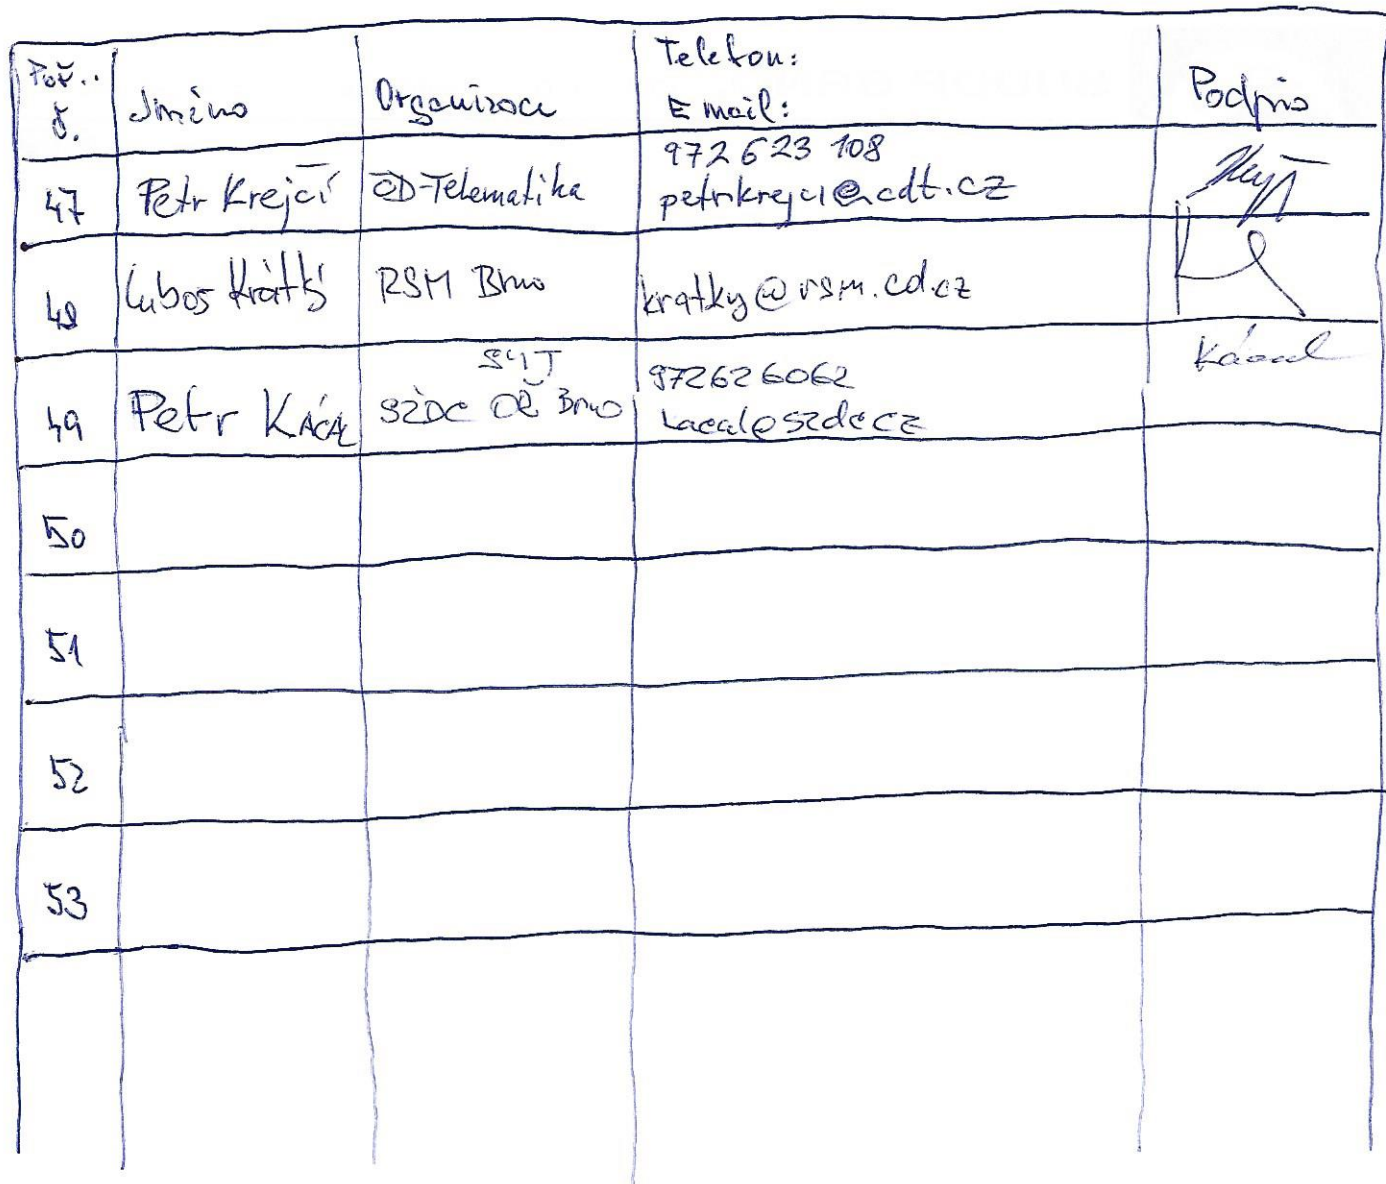 Poř. Jméno Organizace Telefon: Podpis
č. E mail:
47 Petr Krejčí ČD-Telematika 972 623 108
petr.krejci@cdt.cz
48 Luboš Krátký RSM Brno kratky@rsm.cd.cz
49 Petr KÁČAL SŽDC OŘ Brno 972626062
kacal@szdc.cz Káčal
50
51
52
53